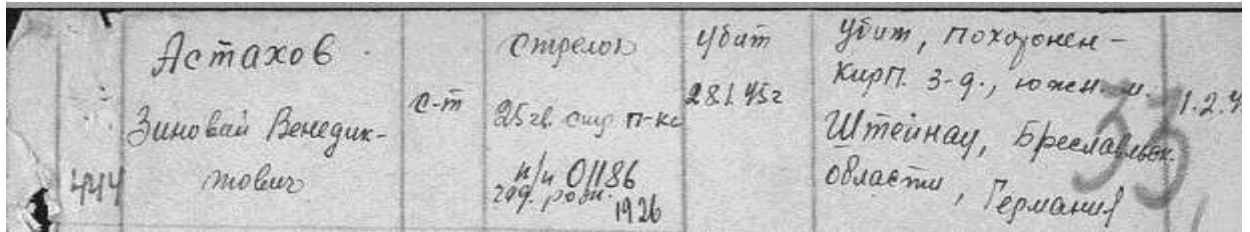 444
Астахов
Зиновий Венедик-
тович
с-т
стрелок
25 гв. стр п-ка
п/п 01186
год. рожд.
1926
Убит
28.1.45г
Убит, похоронен -
кирп. з-д., южн.
Штейнау, Бреславльск.
области, Германия
33
1.2.4